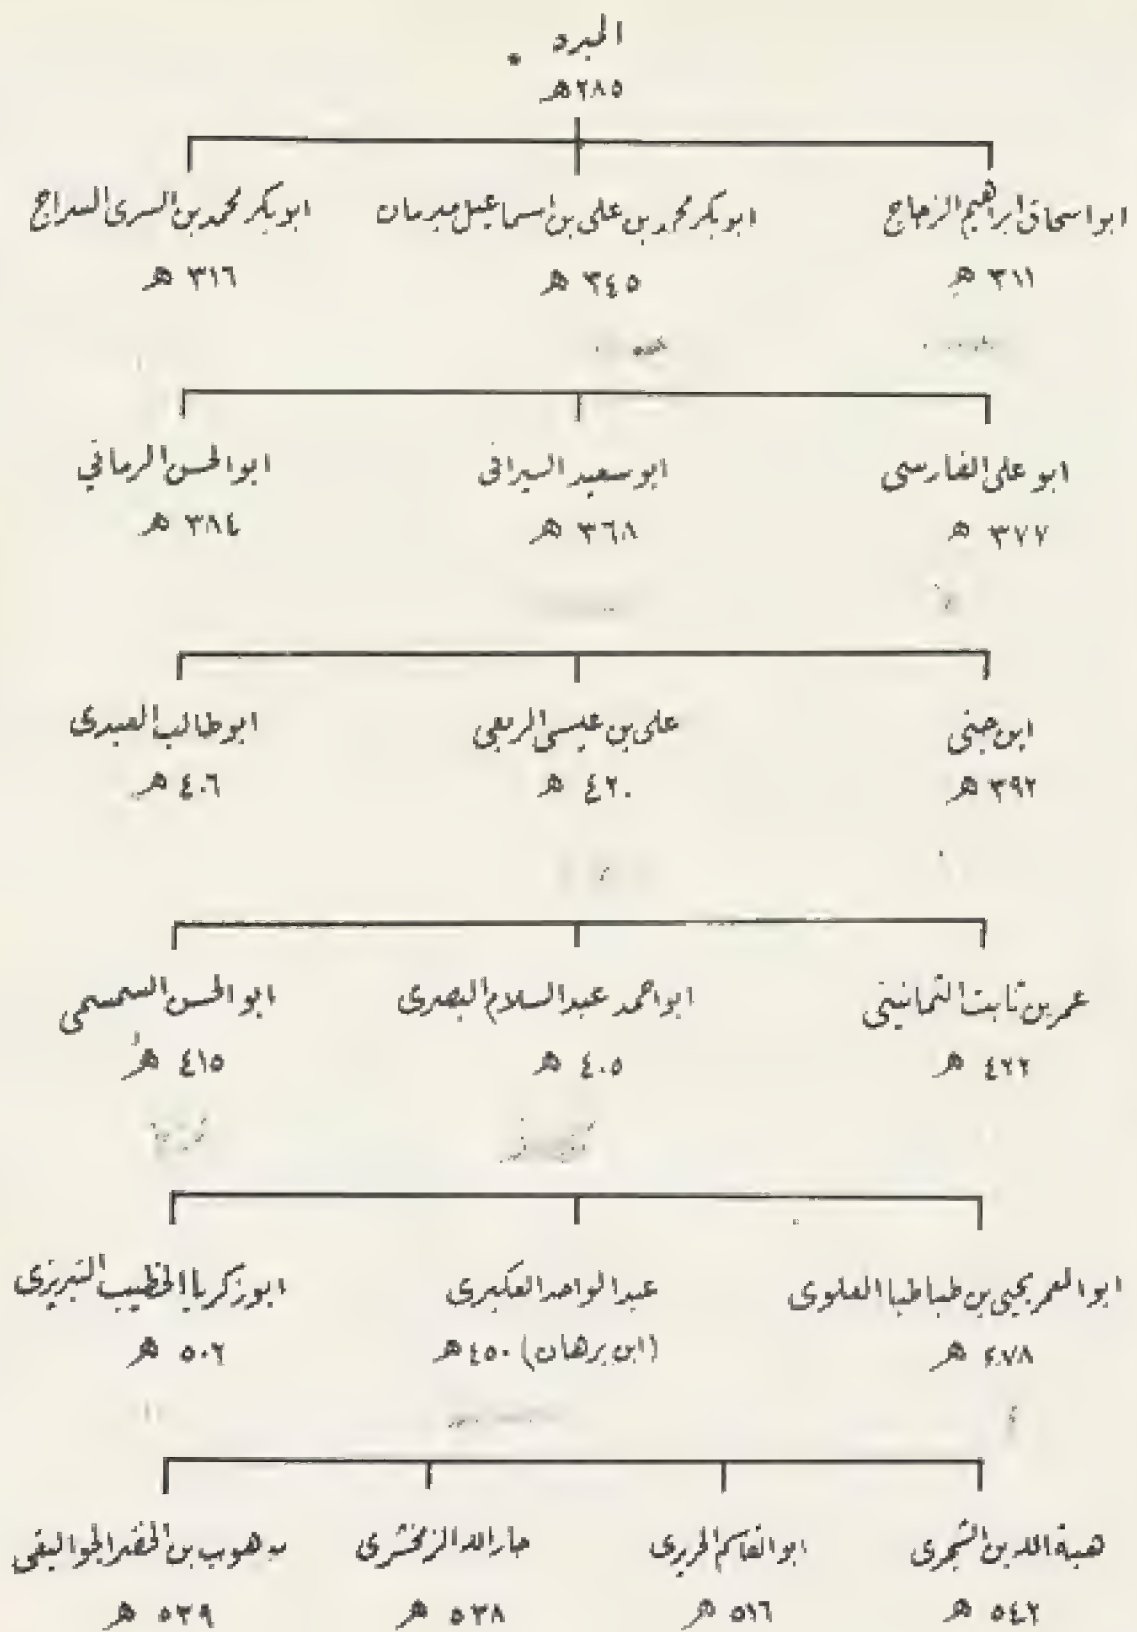 المبرد *
٢٨٥ هـ
ابو اسحاق ابراهيم الزجاج
٣١١ هـ
ابو بكر محمد بن على بن اسماعيل مبرمان
٣٤٥ هـ
ابو بكر محمد بن السرى السراج
٣١٦ هـ
ابو على الفارسى
٣٧٧ هـ
ابو سعيد السيرافى
٣٦٨ هـ
ابو الحسن الرماني
٣٨٤ هـ
ابن جنى
٣٩٢ هـ
على بن عيسى الربعى
٤٢٠ هـ
ابو طالب العبدى
٤٠٦ هـ
عمر بن ثابت الثمانينى
٤٢٢ هـ
ابو احمد عبد السلام البصرى
٤٠٥ هـ
ابو الحسن السمسمى
٤١٥ هـ
ابو المعمر يحيى بن طباطبا العلوى
٤٧٨ هـ
عبد الواحد العكبرى
(ابن برهان) ٤٥٠ هـ
ابو زكريا الخطيب التبريزى
٥٠٢ هـ
هبة الله بن الشجرى
٥٤٢ هـ
ابو القاسم الحريرى
٥١٦ هـ
جار الله الزمخشرى
٥٣٨ هـ
موهوب بن الخضر الجواليقى
٥٣٩ هـ